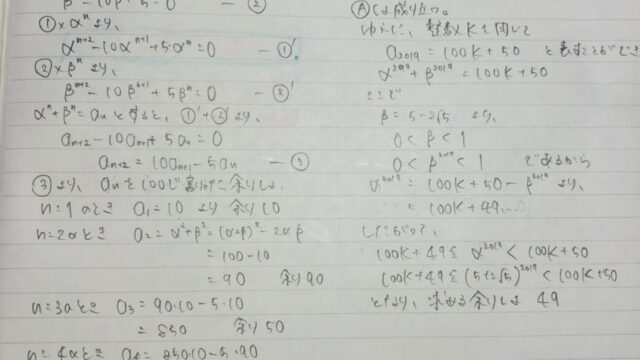 β²-10β+5=0 —②
①×αⁿ より、
αⁿ⁺²-10αⁿ⁺¹+5αⁿ=0 —①'
②×βⁿ より、
βⁿ⁺²-10βⁿ⁺¹+5βⁿ=0 —②'
αⁿ+βⁿ=aₙとすると、①'+②'より、
aₙ₊₂-10aₙ₊₁+5aₙ=0
aₙ₊₂=10aₙ₊₁-5aₙ —③
③より、aₙを100で割った余りは、
n=1のとき a₁=10 より 余り10
n=2のとき a₂=α²+β²=(α+β)²-2αβ
=100-10
=90 余り90
n=3のとき a₃=90・10-5・10
=850 余り50
n=4のとき a₄=850・10-5・90
Ⓐは成り立つ。
ゆえに、整数Kを用いて
a₂₀₁₉=100K+50 と表すことができ
α²⁰¹⁹+β²⁰¹⁹=100K+50
ここで
β=5-2√5 より、
0<β<1
0<β²⁰¹⁹<1 であるから
α²⁰¹⁹=100K+50-β²⁰¹⁹ より、
=100K+49....
したがって、
100K+49≦α²⁰¹⁹<100K+50
100K+49≦(5+2√5)²⁰¹⁹<100K+50
となり、求める余りは 49